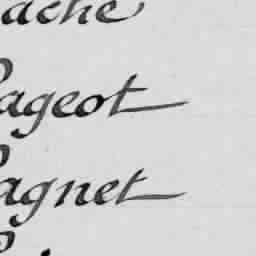 ache
ageot
agnet